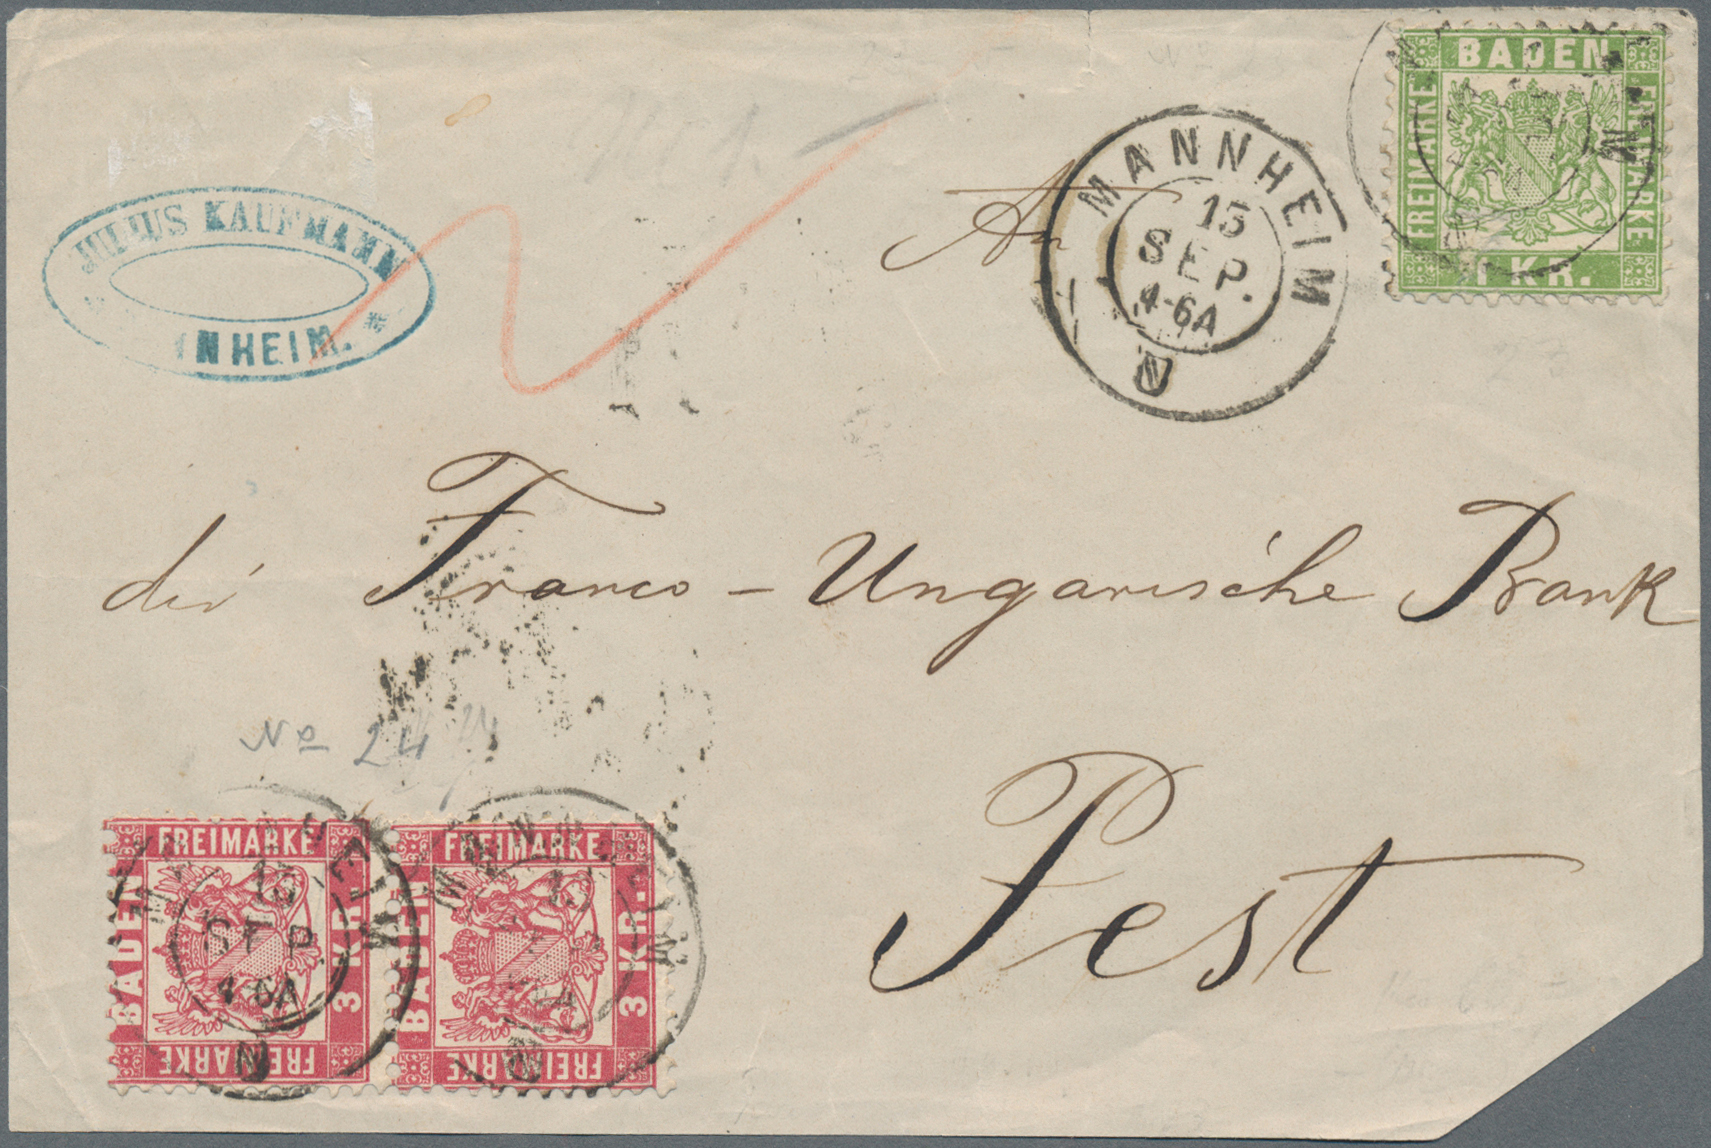 JULIUS KAUFMANN
NHEIM.
An
MANNHEIM
15
SEP.
4-6A
N
BADEN
FREIMARKE
FREIMARKE
1 KR.
die Franco-Ungarische Bank
Pest
No 24
FREIMARKE
BADEN
3 KR.
FREIMARKE
15
SEP.
4-6A
N
FREIMARKE
BADEN
3 KR.
FREIMARKE